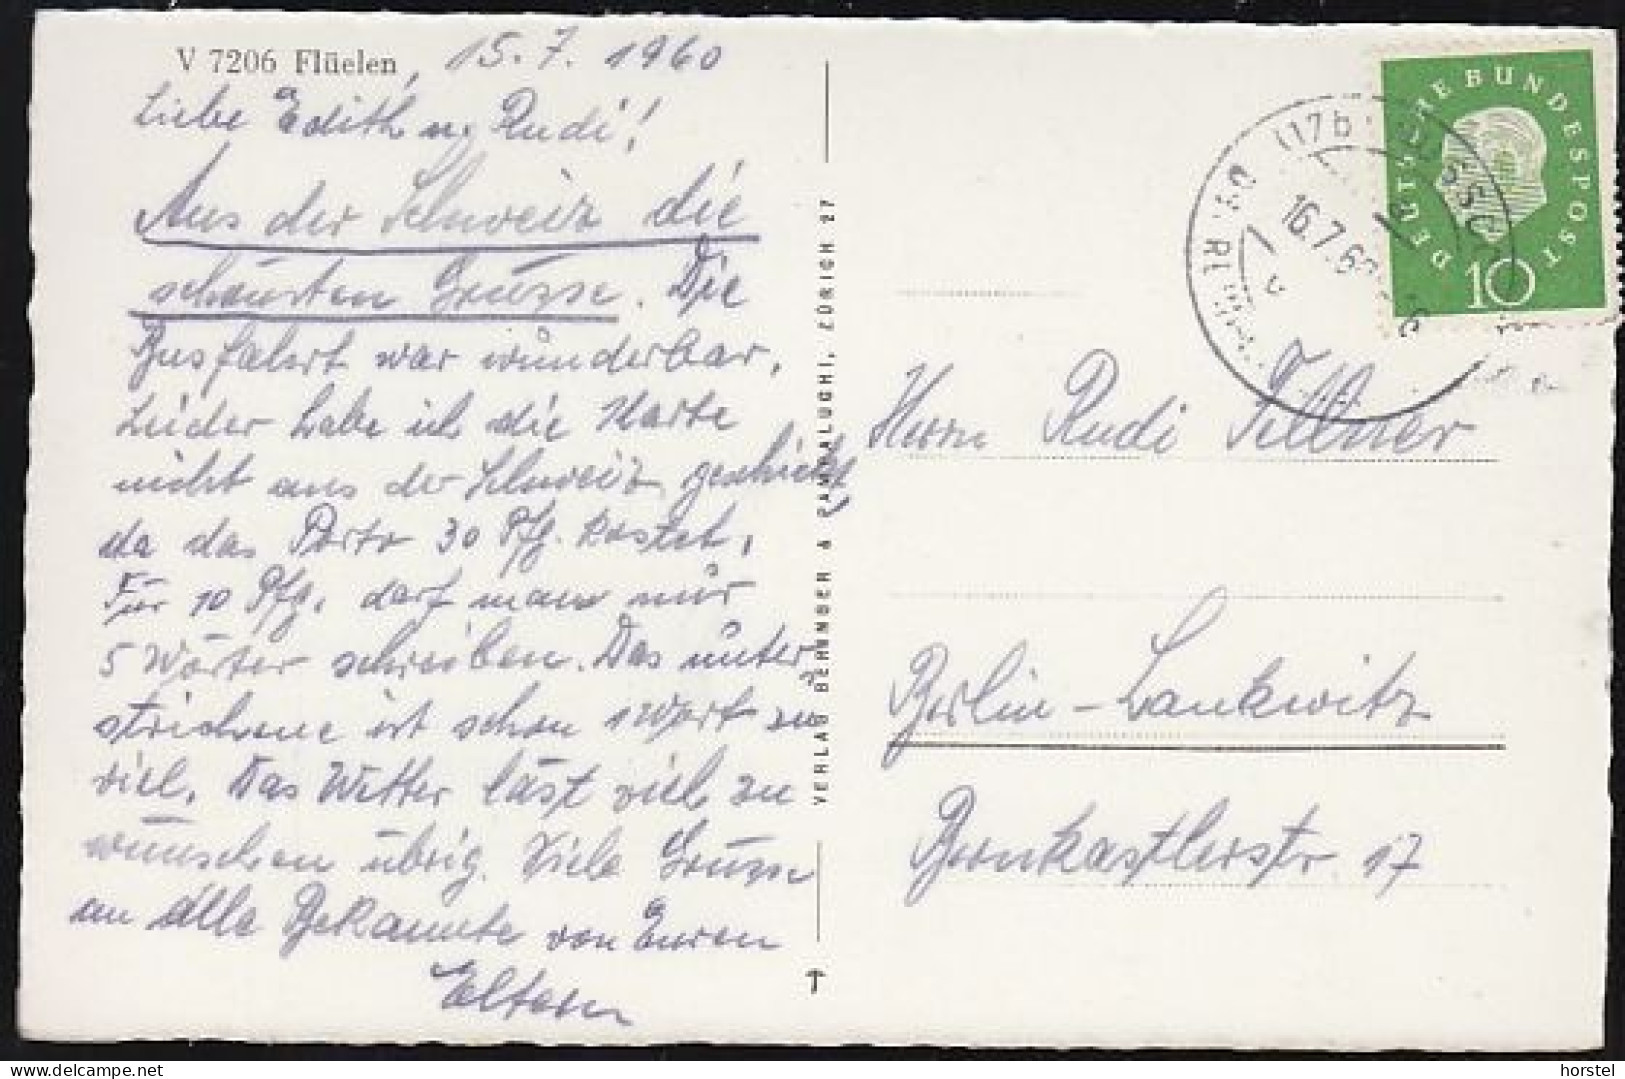 V 7206 Flüelen, 15.7.1960
Liebe Edith u. Rudi!
Aus der Schweiz die
schönsten Grüsse. Die
Busfahrt war wunderbar,
Leider habe ich die Karte
nicht aus der Schweiz geschickt
da das Porto 30 Pfg. kostet,
Für 10 Pfg. darf man nur
5 Wörter schreiben. Das unter
strichene ist schon 1 Wort zu
viel. Das Wetter läst viel zu
wünschen übrig. Viele Grüsse
an alle Bekannte von Euren
Eltern
VERLAG BEHRNDER & PAMPALUCHI, ZÜRICH 27
DEUTSCHE BUNDESPOST
10
(17b)
16.7.60
Herrn Rudi
Berlin-Lankwitz
Bernkastlerstr. 17
horstel